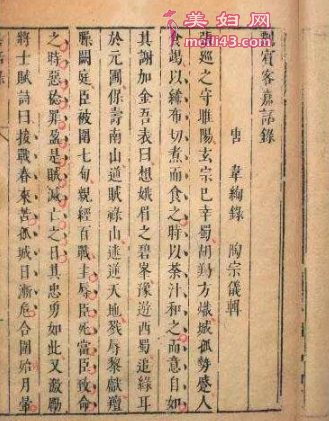 劉賓客嘉話錄
唐　韋絢錄　陶宗儀輯
張巡之守睢陽玄宗已幸蜀胡羯方熾城孤勢蹙人
食竭以紙布切煮而食之時以茶汁和之而意自如
其謝加金吾表曰想峨眉之碧峯豫遊西蜀追綠耳
於元圃保壽南山逆賊祿山迷逆天地戮辱黎獻羶
臊闕庭臣被圍七旬親經百戰主辱臣死當臣致命
之時惡稔罪盈是賊滅亡之日其忠勇如此又激勵
將士賦詩曰接戰春來苦孤城日漸危合圍始月暈
美妇网